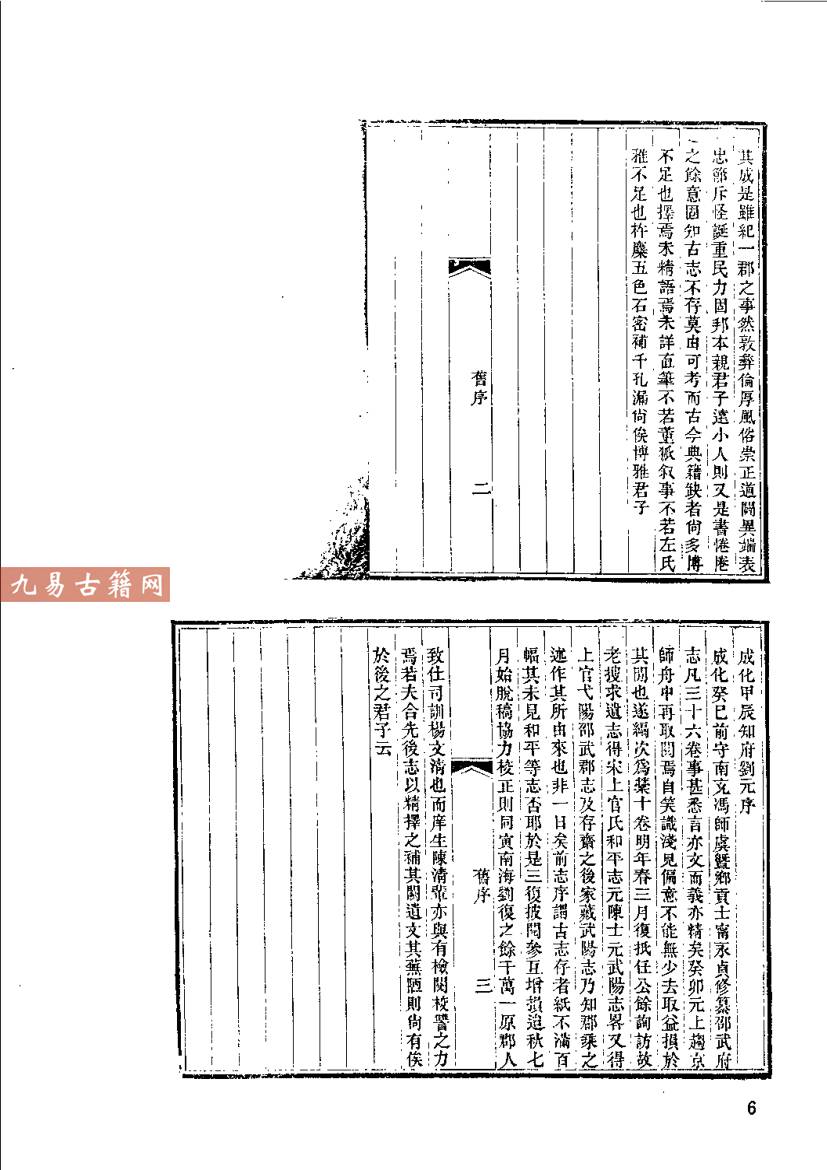 其成是雖紀一郡之事然敦彝倫厚風俗崇正道闢異端表
忠節斥怪誕重民力固邦本親君子遠小人則又是書惓惓
之餘意固知古志不存莫由可考而古今典籍缺者尙多博
不足也擇焉未精語焉未詳直筆不若董狐叙事不若左氏
雅不足也杵麋五色石密補千孔漏尙俟博雅君子
舊序
二
九易古籍网
成化甲辰知府劉元序
成化癸巳前守南充馮師虞曁鄉貢士甯永貞修纂邵武府
志凡三十六卷事甚悉言亦文而義亦精矣癸卯元上趨京
師舟中再取閱焉自笑識淺見偏意不能無少去取益損於
其間也遂編次爲藁十卷明年春三月復抵任公餘詢訪故
老搜求遺志得宋上官氏和平志元陳士元武陽志畧又得
上官弋陽邵武郡志及存齋之後家藏武陽志乃知郡乘之
述作其所由來也非一日矣前志序謂古志存者紙不滿百
幅其未見和平等志否耶於是三復披閱參互增損迨秋七
月始脫稿協力校正則同寅南海劉復之餘干萬一原郡人
舊序
三
致仕司訓楊文淸也而庠生陳淸輩亦與有檢閱校讐之力
焉若夫合先後志以精擇之補其闕遺文其蕪陋則尙有俟
於後之君子云
6